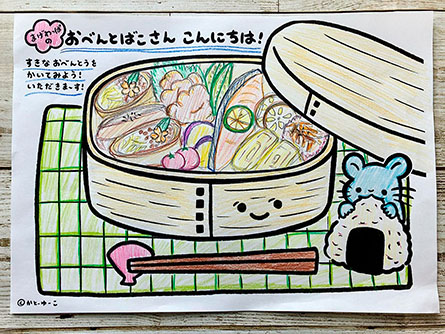 まげわっぱの
おべんとばこさん こんにちは!
すきな おべんとうを
かいてみよう!
いただきまーす!
©かとーゆーこ